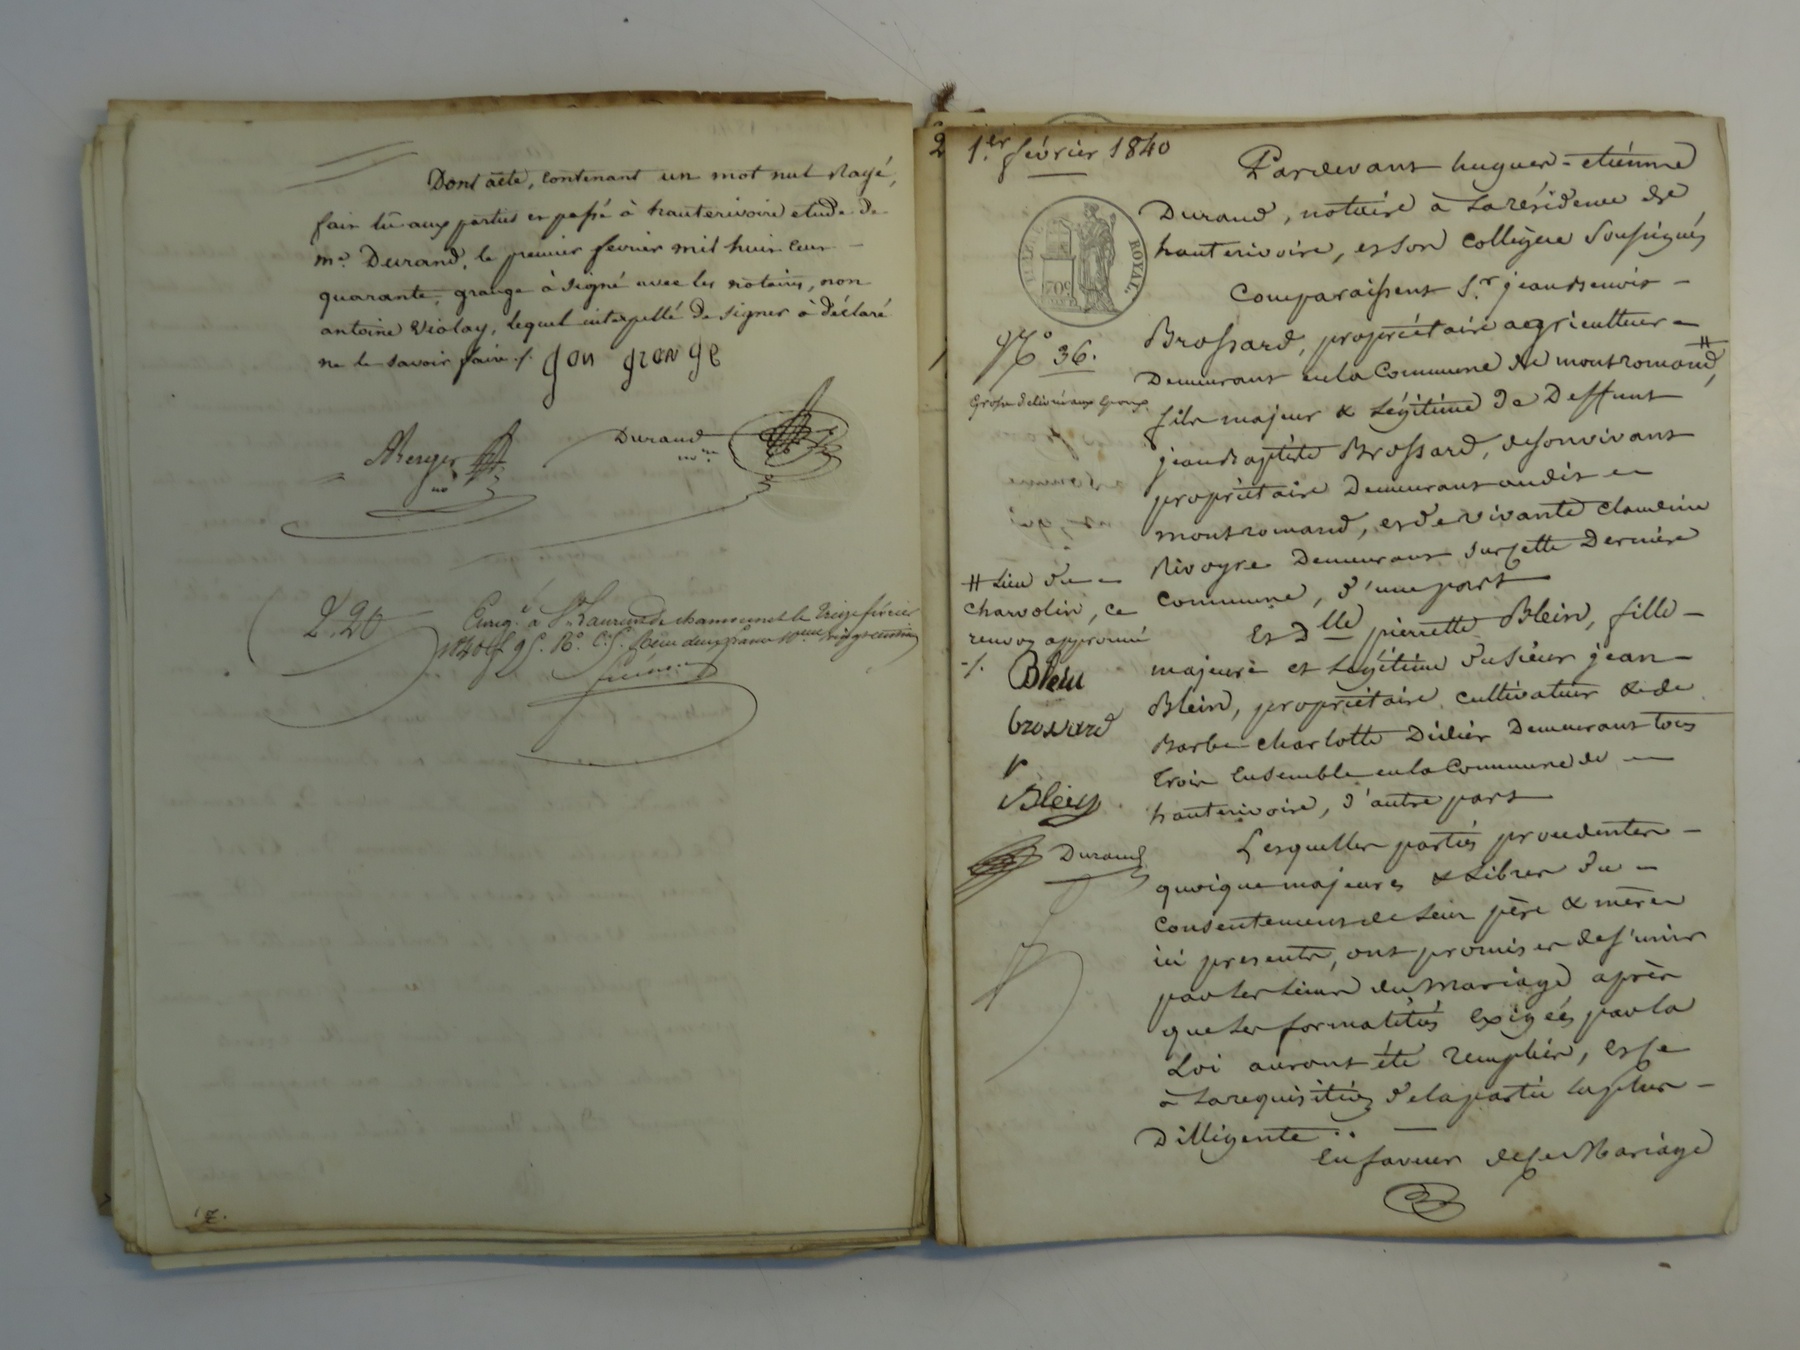 Dont acte, contenant un mot nul rayé,
fait lu aux parties et passé à hauterivoire etude de
me. Durand, le premier fevrier mil huit cent
quarante, grange à signé avec les notaires, non
antoine Violay, lequel interpellé de signer à déclaré
ne le savoir faire ./. gon grange
Berger
no
Durand
nore
2, 20
Enregé. à St. Laurent de chamousset le treize février
1840
1er. février 1840
TIMBRE ROYAL
70c
No 36.
Grosse délivrée aux époux
# Lieu du
charvolin, ce
renvoy approuvé
./.
Blein
brossard
Blein
Durand
Pardevant hugues-etiénne
Durand, notaire à la résidence de
hauterivoire, et son collègue soussignés
Comparaissent Sr. jean benoit
Brossard, propriétaire agriculteur
Demeurant en la Commune de montromand, #
fils majeur & légitime de Deffunt
jean baptiste Brossard, de son vivant
propriétaire Demeurant audit
montromand, et de vivante claudine
Rivoyre Demeurant sur cette Dernière
Commune, d'une part
Et Dlle pierrette Blein, fille
majeure et légitime du sieur jean
Blein, propriétaire cultivateur & de
Barbe charlotte Didier Demeurant tous
trois Ensemble en la Commune de
hauterivoire, d'autre part
Lesquelles parties procedentes
quoique majeures & libres du
Consentement de leur père & mère
ici presents, ont promis et de s'unir
par les liens du Mariage après
que les formalités exigées par la
Loi auront été remplies, et ce
à la requisition de la partie la plus
Dilligente
En faveur de ce Mariage